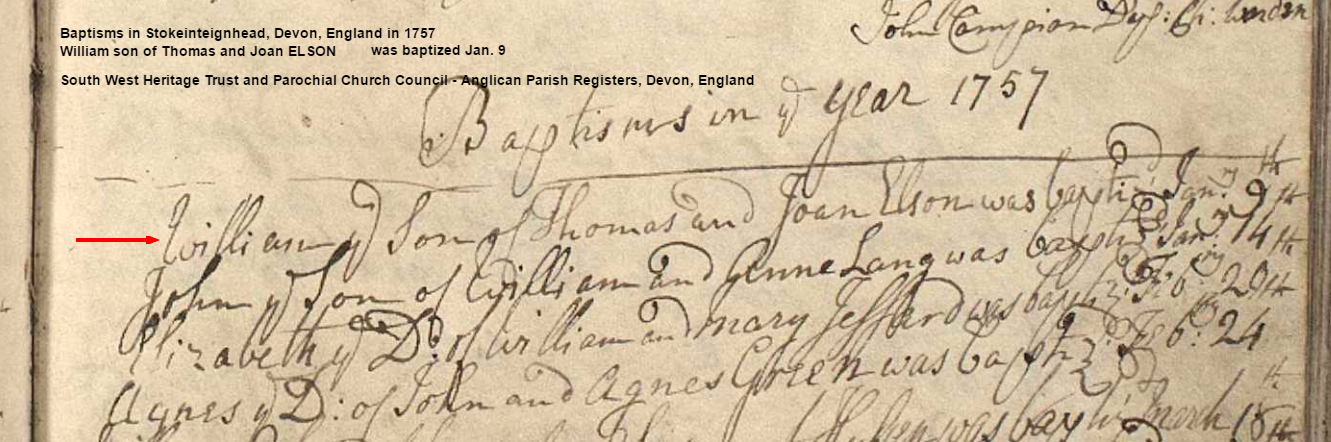 John Campion Dep: Ch: Warden
Baptisms in Stokeinteignhead, Devon, England in 1757
William son of Thomas and Joan ELSON was baptized Jan. 9
South West Heritage Trust and Parochial Church Council - Anglican Parish Registers, Devon, England
Baptisms in yͤ year 1757
William yͤ Son of Thomas and Joan Elson was baptiz'd Janry 9th
John yͤ Son of William and Genne Lang was baptz'd Janry 14th
Elizabeth yͤ Dr: of William and Mary Jefford was baptz'd Feb: 20th
Agnes yͤ D: of John and Agnes Green was baptz'd Feb: 24
was baptiz'd March 15th